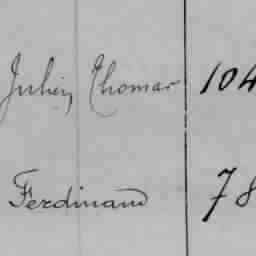 Julien, Thomas 104
Ferdinand 78